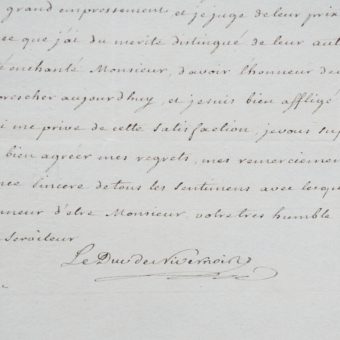 grand empressement, et je juge de leur prix
ee que j'ai du merite distingué de leur aut
é enchanté Monsieur, d'avoir l'honneur de v
rescher aujourdhuy, et je suis bien affligé
i me prive de cette satisfaction, je vous sup
bien agréer mes regrets, mes remerciemen
nce sincere de tous les sentimens avec lesque
nneur d'etre Monsieur, votre tres humble
serviteur
Le Duc de Nivernois